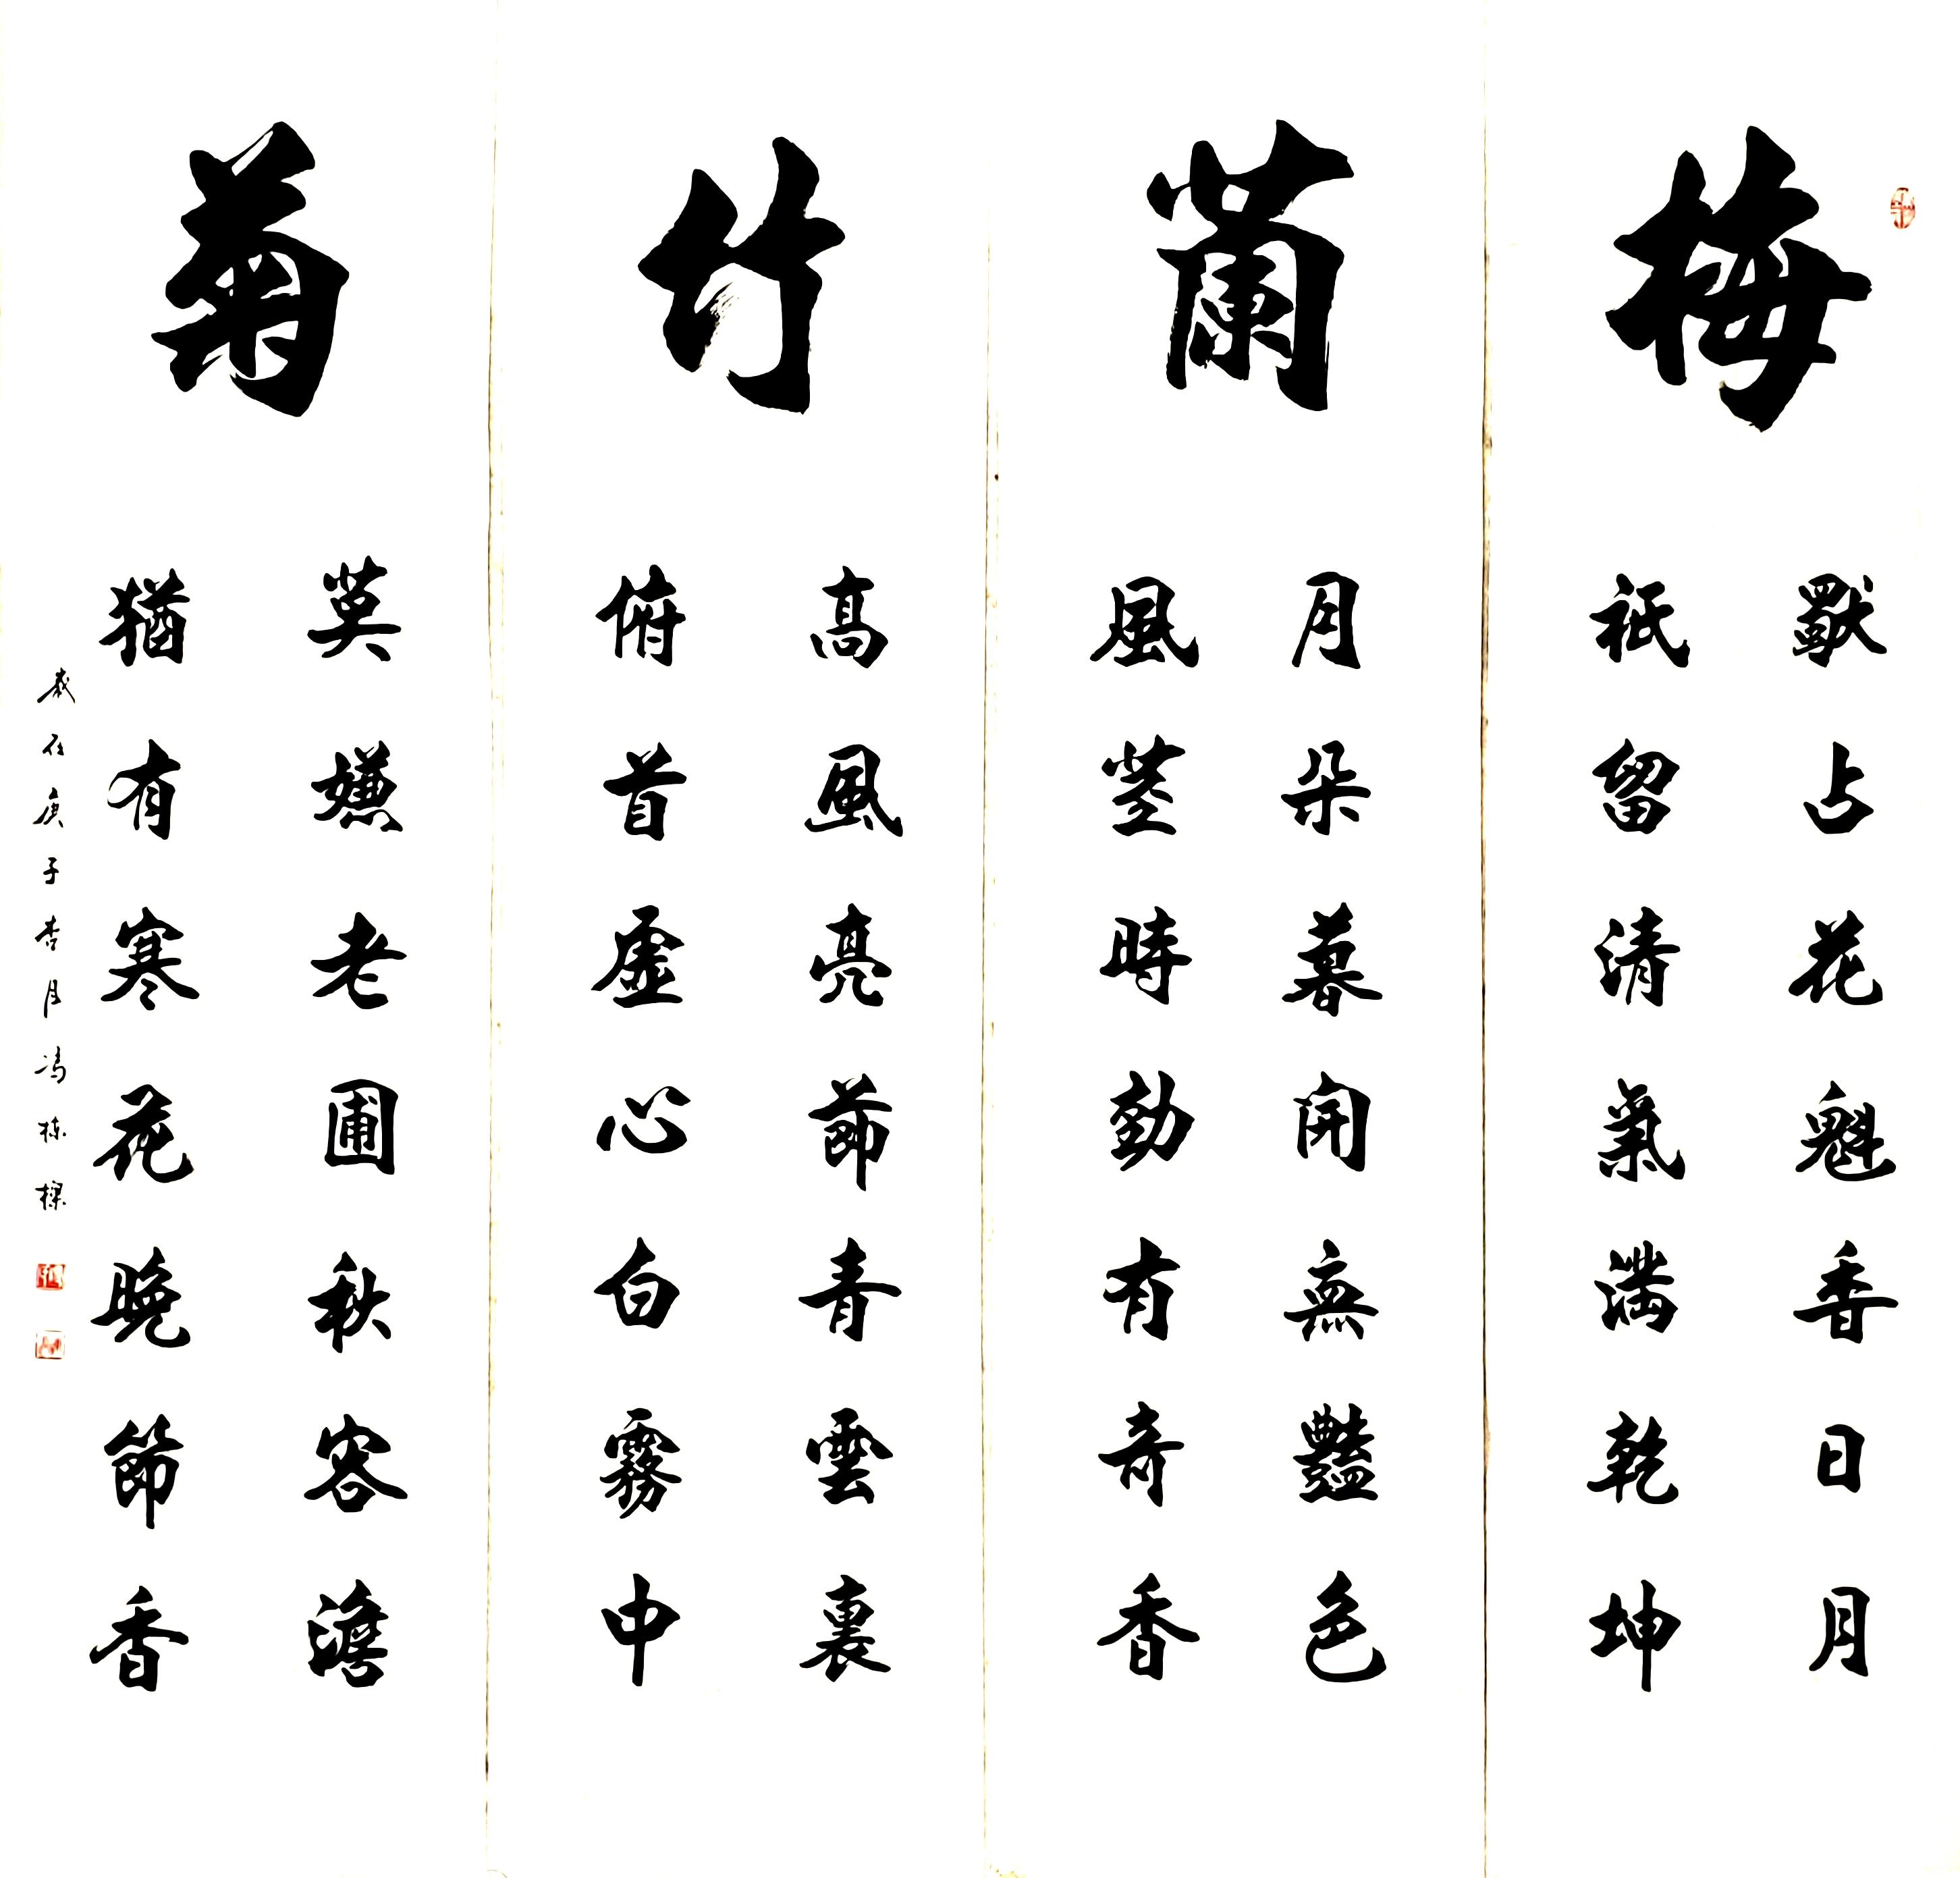 梅
默占花魁香日月
祇留清氣滿乾坤
蘭
月朵暮開無豔色
風莖時動有奇香
竹
高風亮節青雲裏
俯首虛心白霧中
菊
莫嫌老圃秋容澹
猶有寒花晚節香
歲在庚子杏月冯栋樑